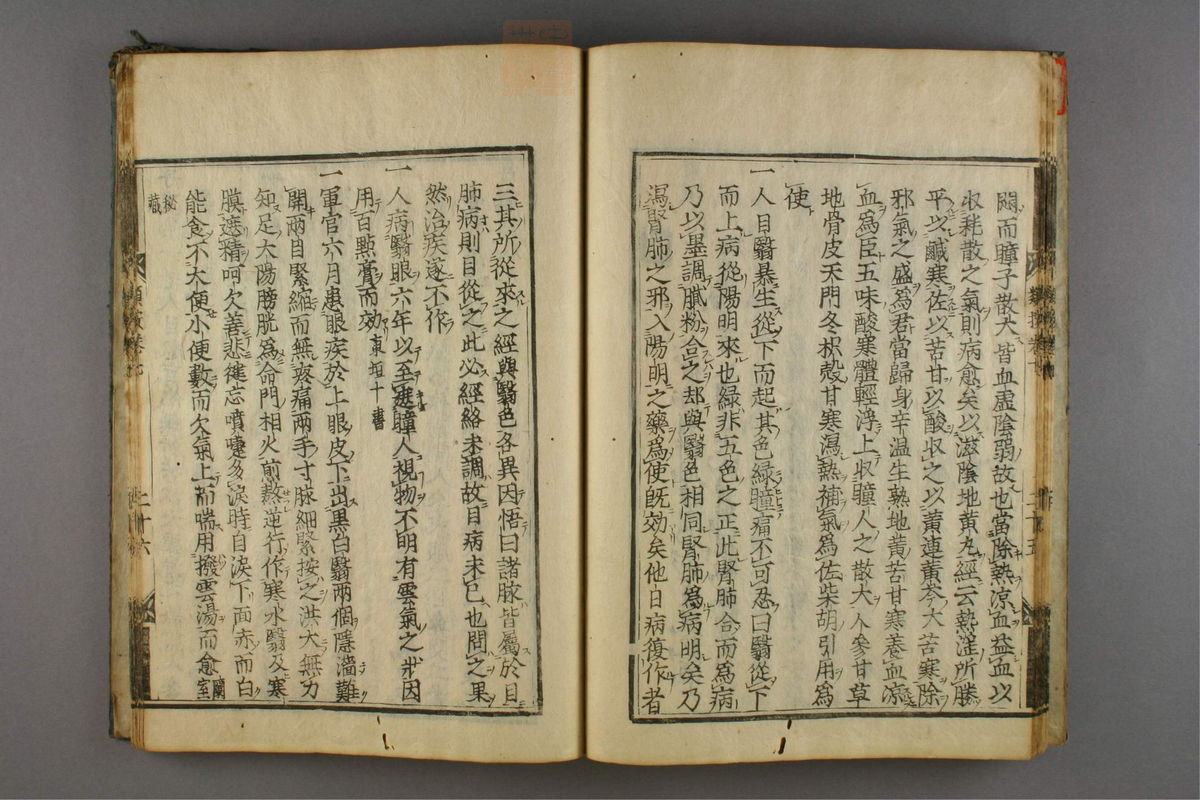 闊而瞳子散大皆血虛陰弱故也當除熱凉血益血以
收耗散之氣則病愈矣以滋陰地黃丸經云熱淫所勝
平以鹹寒佐以苦甘以酸収之以黃連黃芩大苦寒除
邪氣之盛爲君當歸身辛温生熟地黃苦甘寒養血凉
血爲臣五味酸寒體輕浮上収瞳人之散大人參甘草
地骨皮天門冬枳殼甘寒瀉熱補氣爲佐柴胡引用爲
使
一人目翳暴生從下而起其色緑瞳痛不可忍曰翳從下
而上病從陽明來也緑非五色之正此腎肺合而爲病
乃以墨調膩粉合之却與翳色相同腎肺爲病明矣乃
瀉腎肺之邪入陽明之藥爲使旣効矣他日病復作者
三其所從來之經與翳色各異因悟曰諸脉皆屬於目
肺病則目從之此必經絡未調故目病未已也問之果
然治疾遂不作
一人病翳眼六年以至遮瞳人視物不明有雲氣之狀因
用百點膏而効東垣十書
一軍官六月患眼疾於上眼皮下出黒白翳兩個隱濇難
開兩目緊縮而無疼痛兩手寸脉細緊按之洪大無力
知足大陽膀胱爲命門相火煎熬逆行作寒水翳及寒
膜遮精呵欠善悲徤忘噴嚏多淚時自淚下面赤而白
能食不大便小便數而欠氣上而喘用撥雲湯而愈蘭室
秘藏